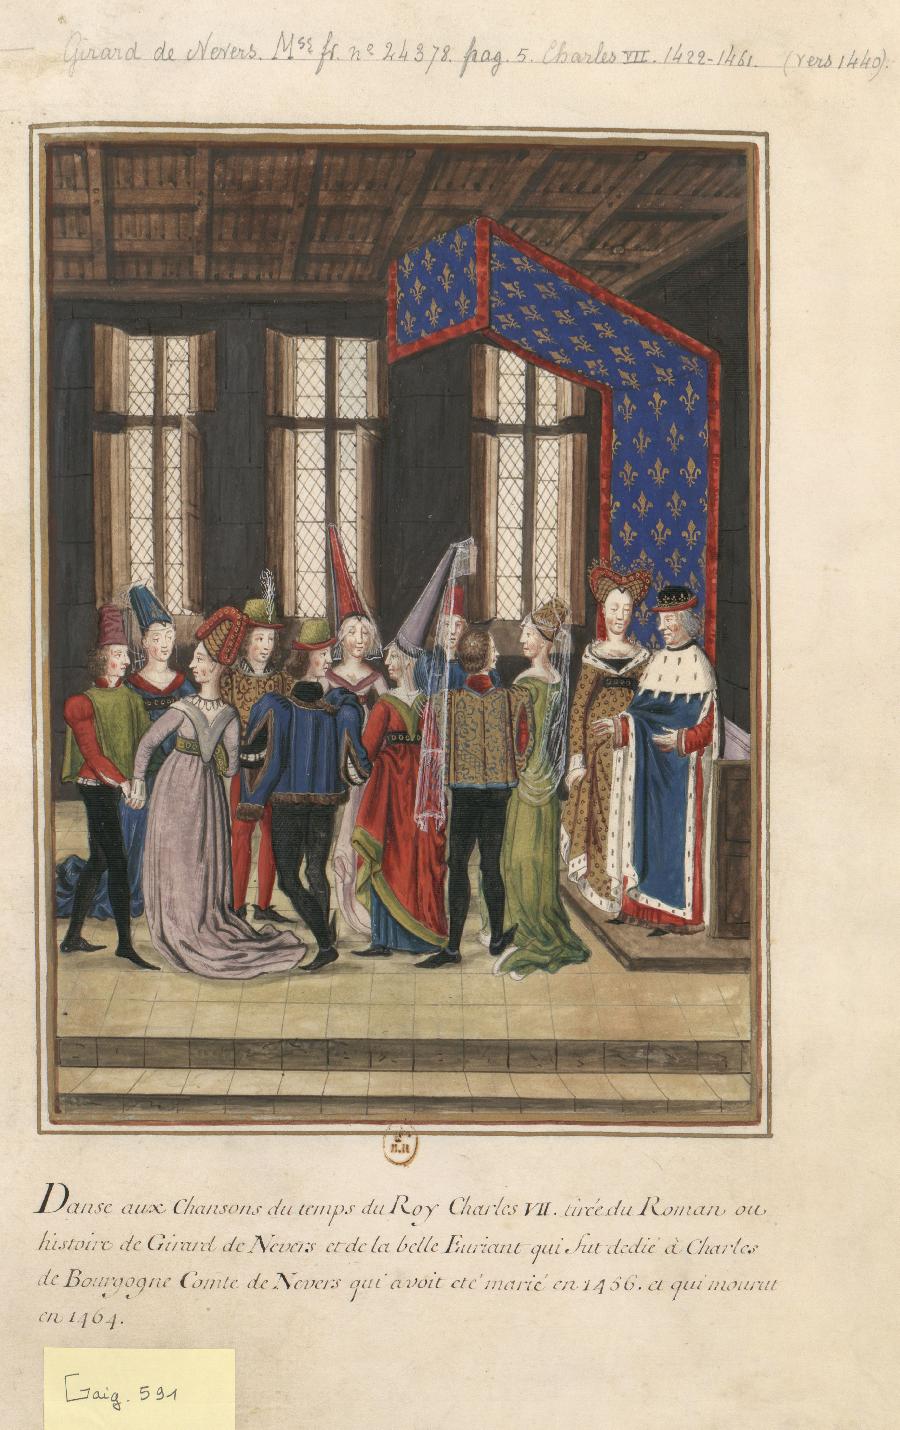 Girard de Nevers. Mss fr. no 24378. pag. 5. Charles VII. 1422-1461. (vers 1440).
Danse aux Chansons du temps du Roy Charles VII. tirée du Roman ou
histoire de Girard de Nevers et de la belle Euriant qui fut dedié à Charles
de Bourgogne Comte de Nevers qui avoit eté marié en 1456. et qui mourut
en 1464.
Gaig. 591